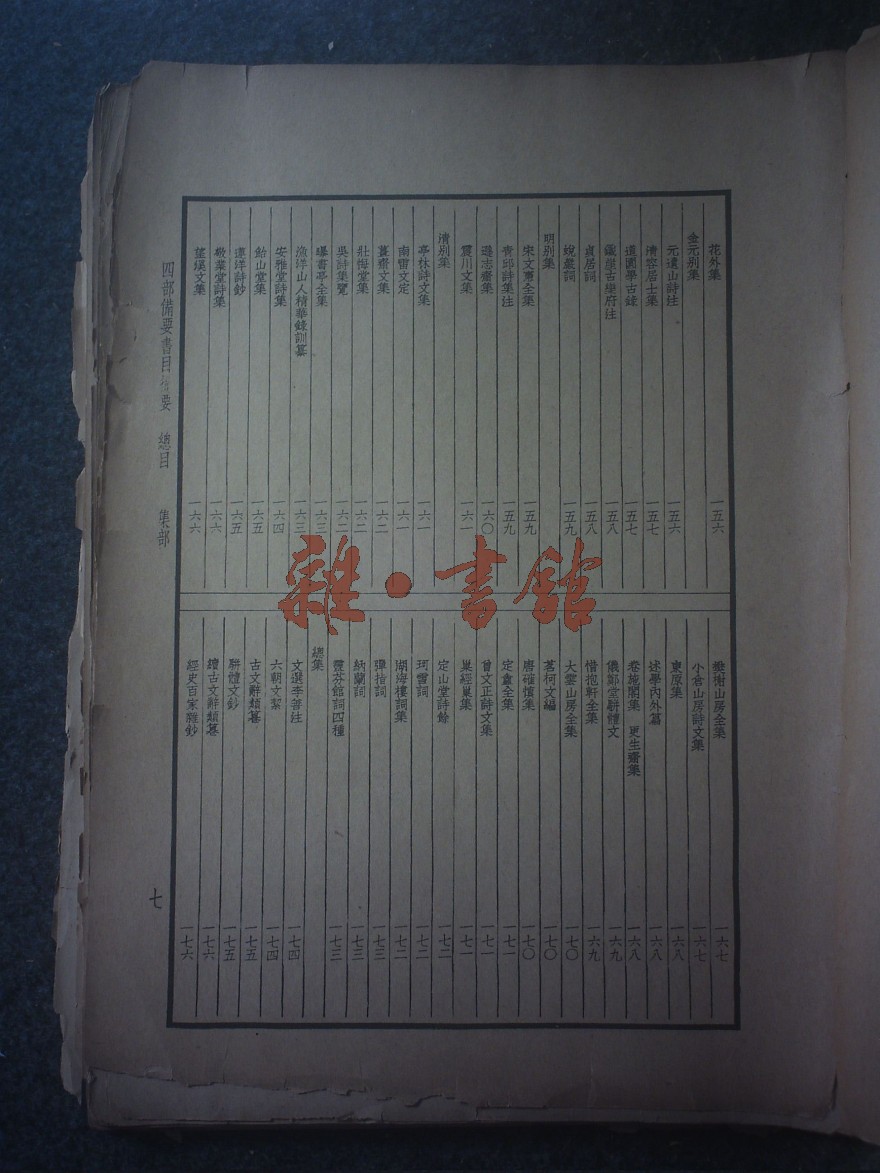 花外集 一五六
金元別集
元遺山詩注 一五六
清容居士集 一五七
道園學古錄 一五七
鐵崖古樂府注 一五八
貞居詞 一五八
蛻巖詞 一五九
明別集
宋文憲全集 一五九
青邱詩集注 一五九
遜志齋集 一六〇
震川文集 一六一
清別集
亭林詩文集 一六一
南雷文定 一六一
薑齋文集 一六二
壯悔堂集 一六二
吳詩集覽 一六二
曝書亭全集 一六三
漁洋山人精華錄訓纂 一六三
安雅堂詩集 一六四
飴山堂集 一六五
蓮洋詩鈔 一六五
敬業堂詩集 一六六
望溪文集 一六六
樊榭山房全集 一六七
小倉山房詩文集 一六七
東原集 一六八
述學內外篇 一六八
卷施閣集 更生齋集 一六八
儀鄭堂駢體文 一六九
惜抱軒全集 一六九
大雲山房全集 一七〇
茗柯文編 一七〇
唐確慎集 一七〇
定盦全集 一七一
曾文正詩文集 一七一
巢經巢集 一七一
定山堂詩餘 一七二
珂雪詞 一七二
湖海樓詞集 一七二
彈指詞 一七三
納蘭詞 一七三
靈芬館詞四種 一七三
總集
文選李善注 一七四
六朝文絜 一七四
古文辭類纂 一七五
駢體文鈔 一七五
續古文辭類纂 一七六
經史百家雜鈔 一七六
四部備要書目提要 總目 集部
七
雜·書館